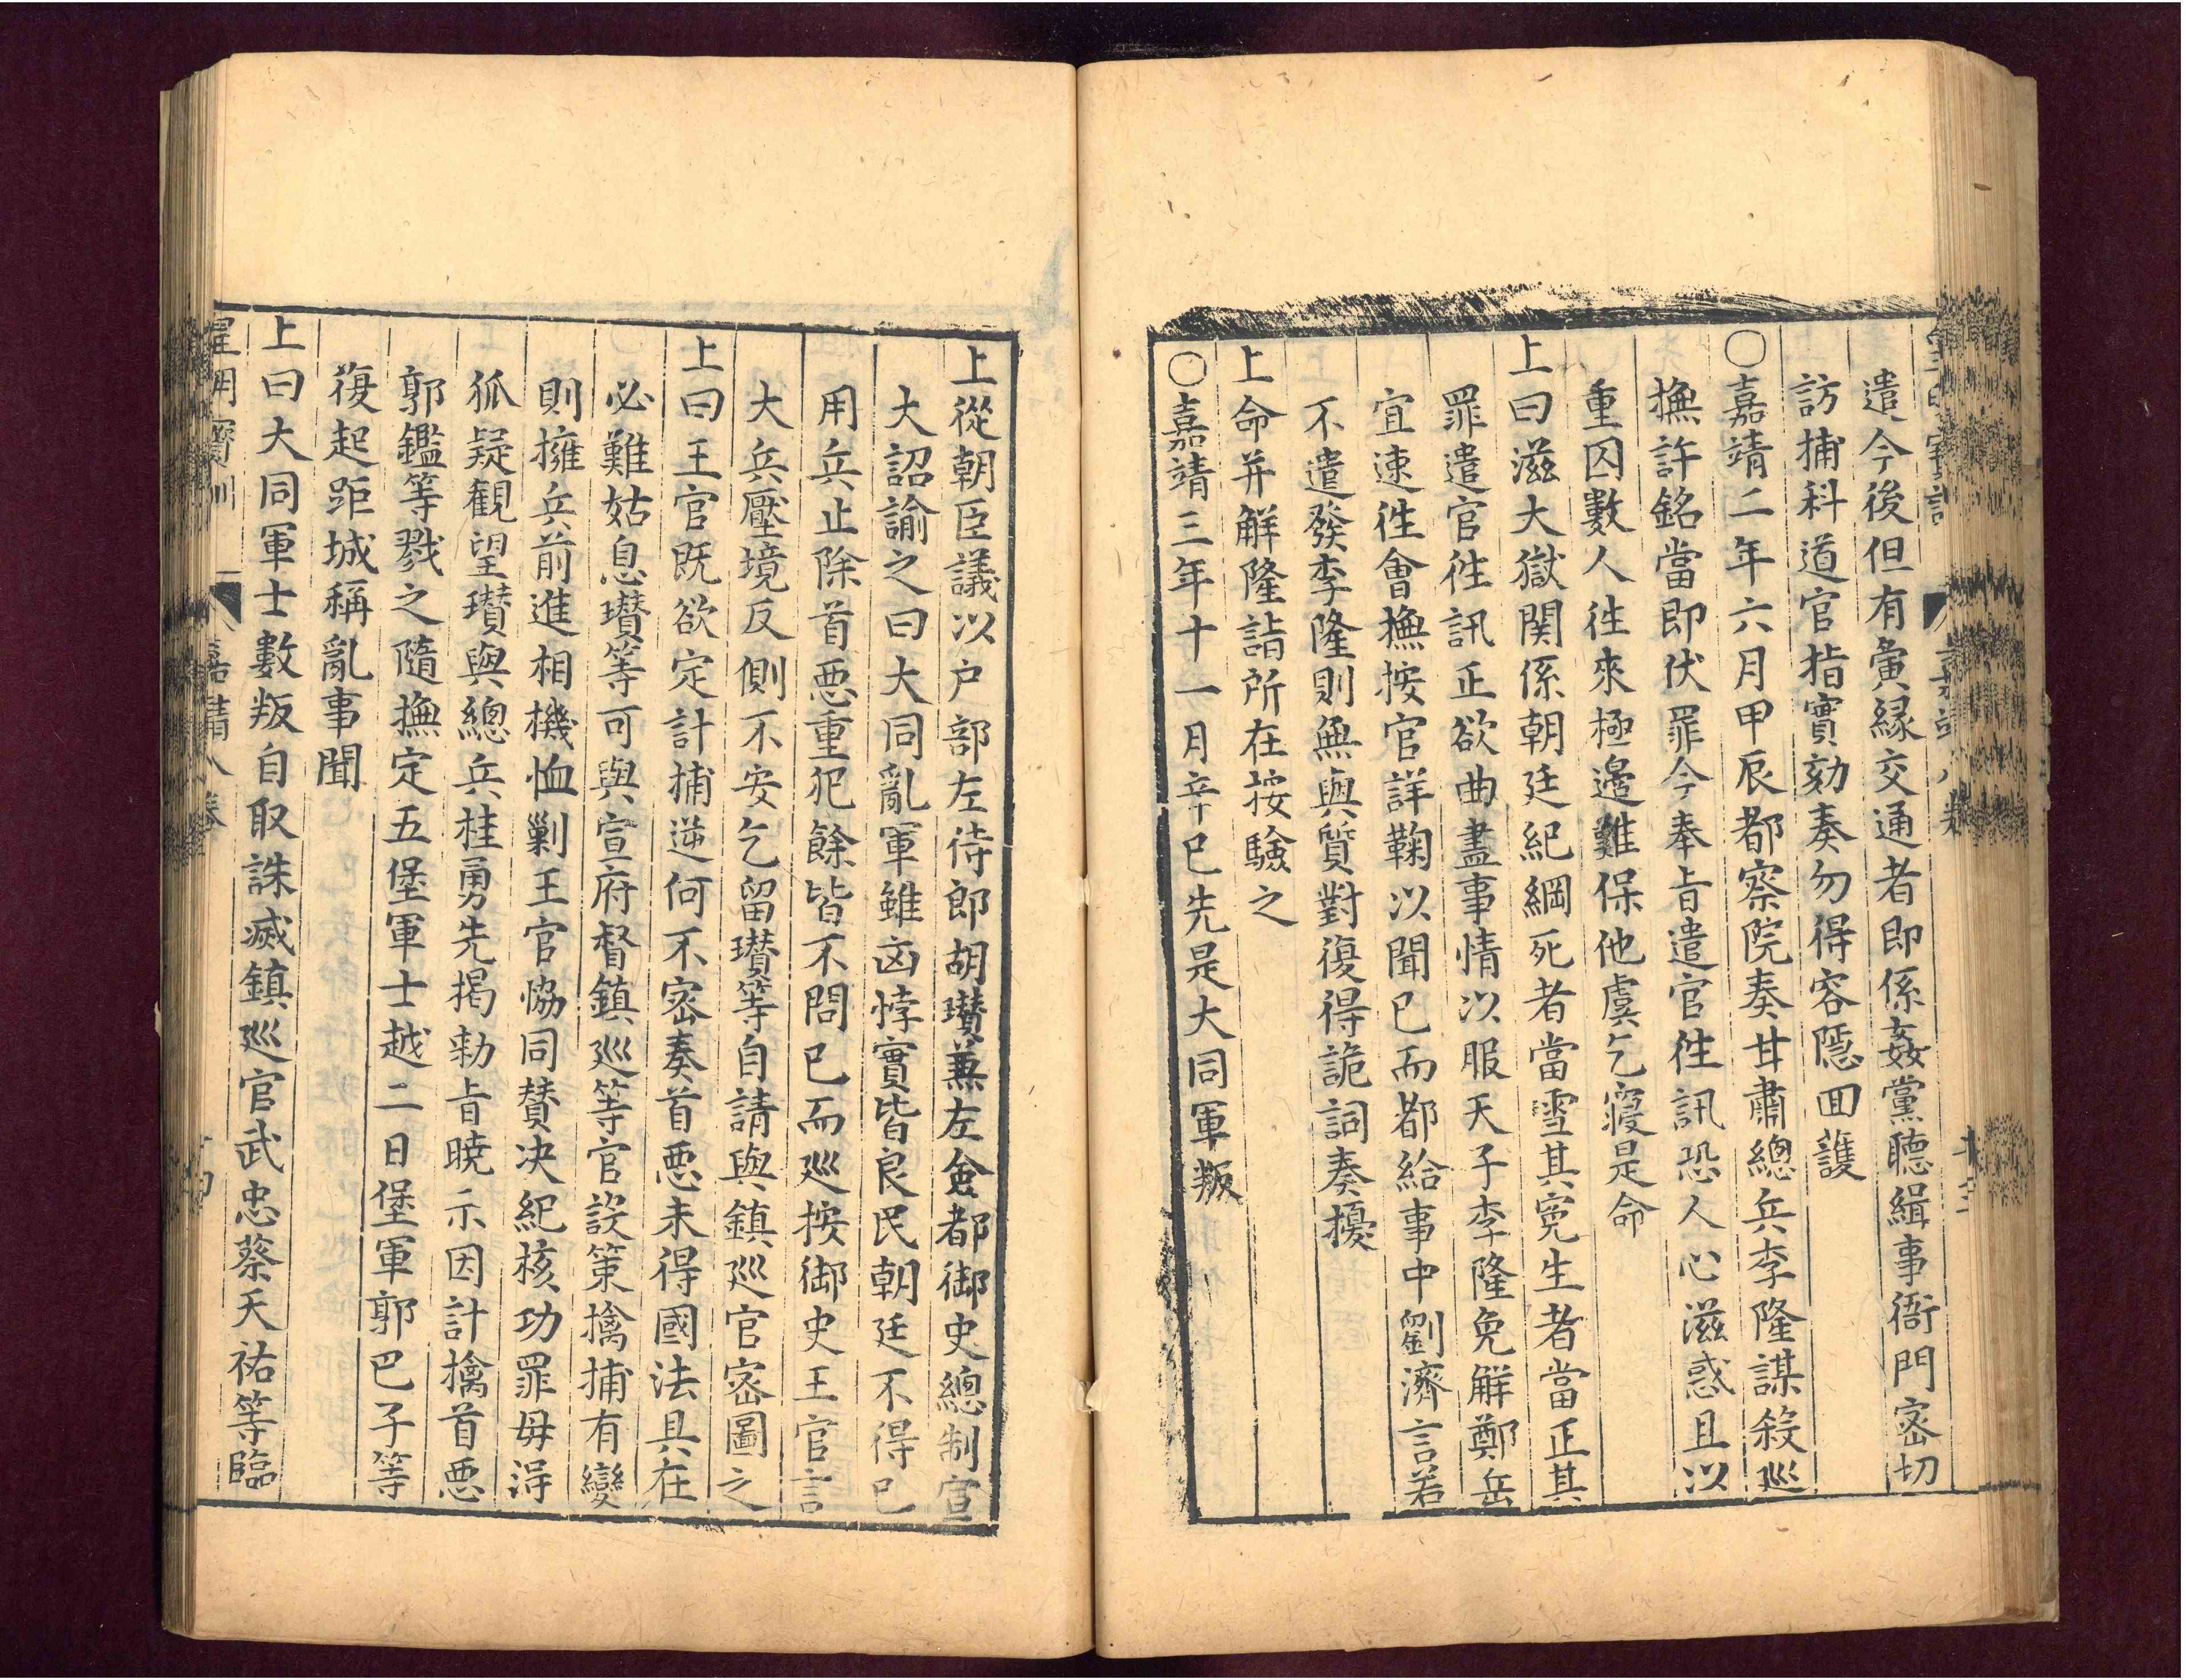 遣今後但有夤緣交通者即係姦黨聽緝事衙門密切
訪捕科道官指實劾奏勿得容隱回護
○嘉靖二年六月甲辰都察院奏甘肅總兵李隆謀殺巡
撫許銘當即伏罪今奉旨遣官徃訊恐人心滋惑且以
重囚數人徃來極邊難保他虞乞寢是命
上曰滋大獄関係朝廷紀綱死者當雪其寃生者當正其
罪遣官徃訊正欲曲盡事情以服天子李隆免解鄭岳
宜速徃會撫按官詳鞠以聞已而都給事中劉濟言若
不遣發李隆則無與質對復得詭詞奏擾
上命并解隆詣所在按驗之
○嘉靖三年十一月辛巳先是大同軍叛
上從朝臣議以户部左侍郎胡瓚兼左僉都御史總制宣
大詔諭之曰大同亂軍雖凶悖實皆良民朝廷不得已
用兵止除首悪重犯餘皆不問已而巡按御史王官言
大兵壓境反側不安乞留瓚等自請與鎮巡官密圖之
上曰王官既欲定計捕逆何不密奏首悪未得國法具在
必難姑息瓚等可與宣府督鎮巡等官設策擒捕有變
則擁兵前進相機恤剿王官恊同賛决紀核功罪毋淂
狐疑観望瓚與總兵桂勇先掲勑旨曉示因計擒首悪
郭鑑等戮之隨撫定五堡軍士越二日堡軍郭巴子等
復起距城稱亂事聞
上曰大同軍士數叛自取誅滅鎮巡官武忠蔡天祐等臨
皇明寳訓 嘉靖八卷